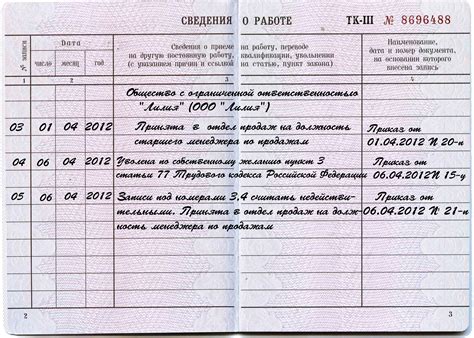 СВЕДЕНИЯ О РАБОТЕ
ТК-III № 8696488
№ записи
Дата
число месяц год
Сведения о приеме на работу, переводе
на другую постоянную работу, квалификации, увольнении
(с указанием причин и ссылкой на статью, пункт закона)
Наименование,
дата и номер документа,
на основании которого
внесена запись
1 2 3 4
Общество с ограниченной ответственностью
"Лилия" (ООО "Лилия")
03 01 04 2012 Принята в отдел продаж на должность Приказ от
старшего менеджера по продажам 01.04.2012 N 20-п
04 06 04 2012 Уволена по собственному желанию пункт 3 Приказ от
статьи 77 Трудового кодекса Российской Федерации 06.04.2012 N 15-у
05 06 04 2012 Записи под номерами 3,4 считать недействи- Приказ от
тельными. Принята в отдел продаж на долж- 06.04.2012 N 21-п
ность менеджера по продажам
2 3